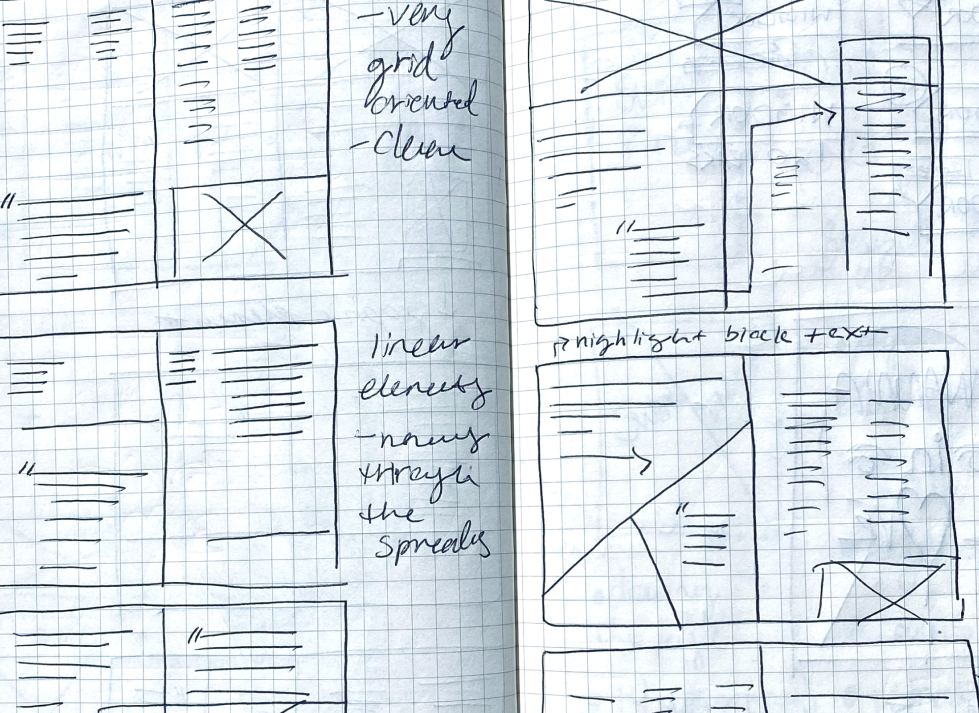 -very
grid
oriented
-Clean
linear
elements
-moves
through
the
spreads
highlight black text